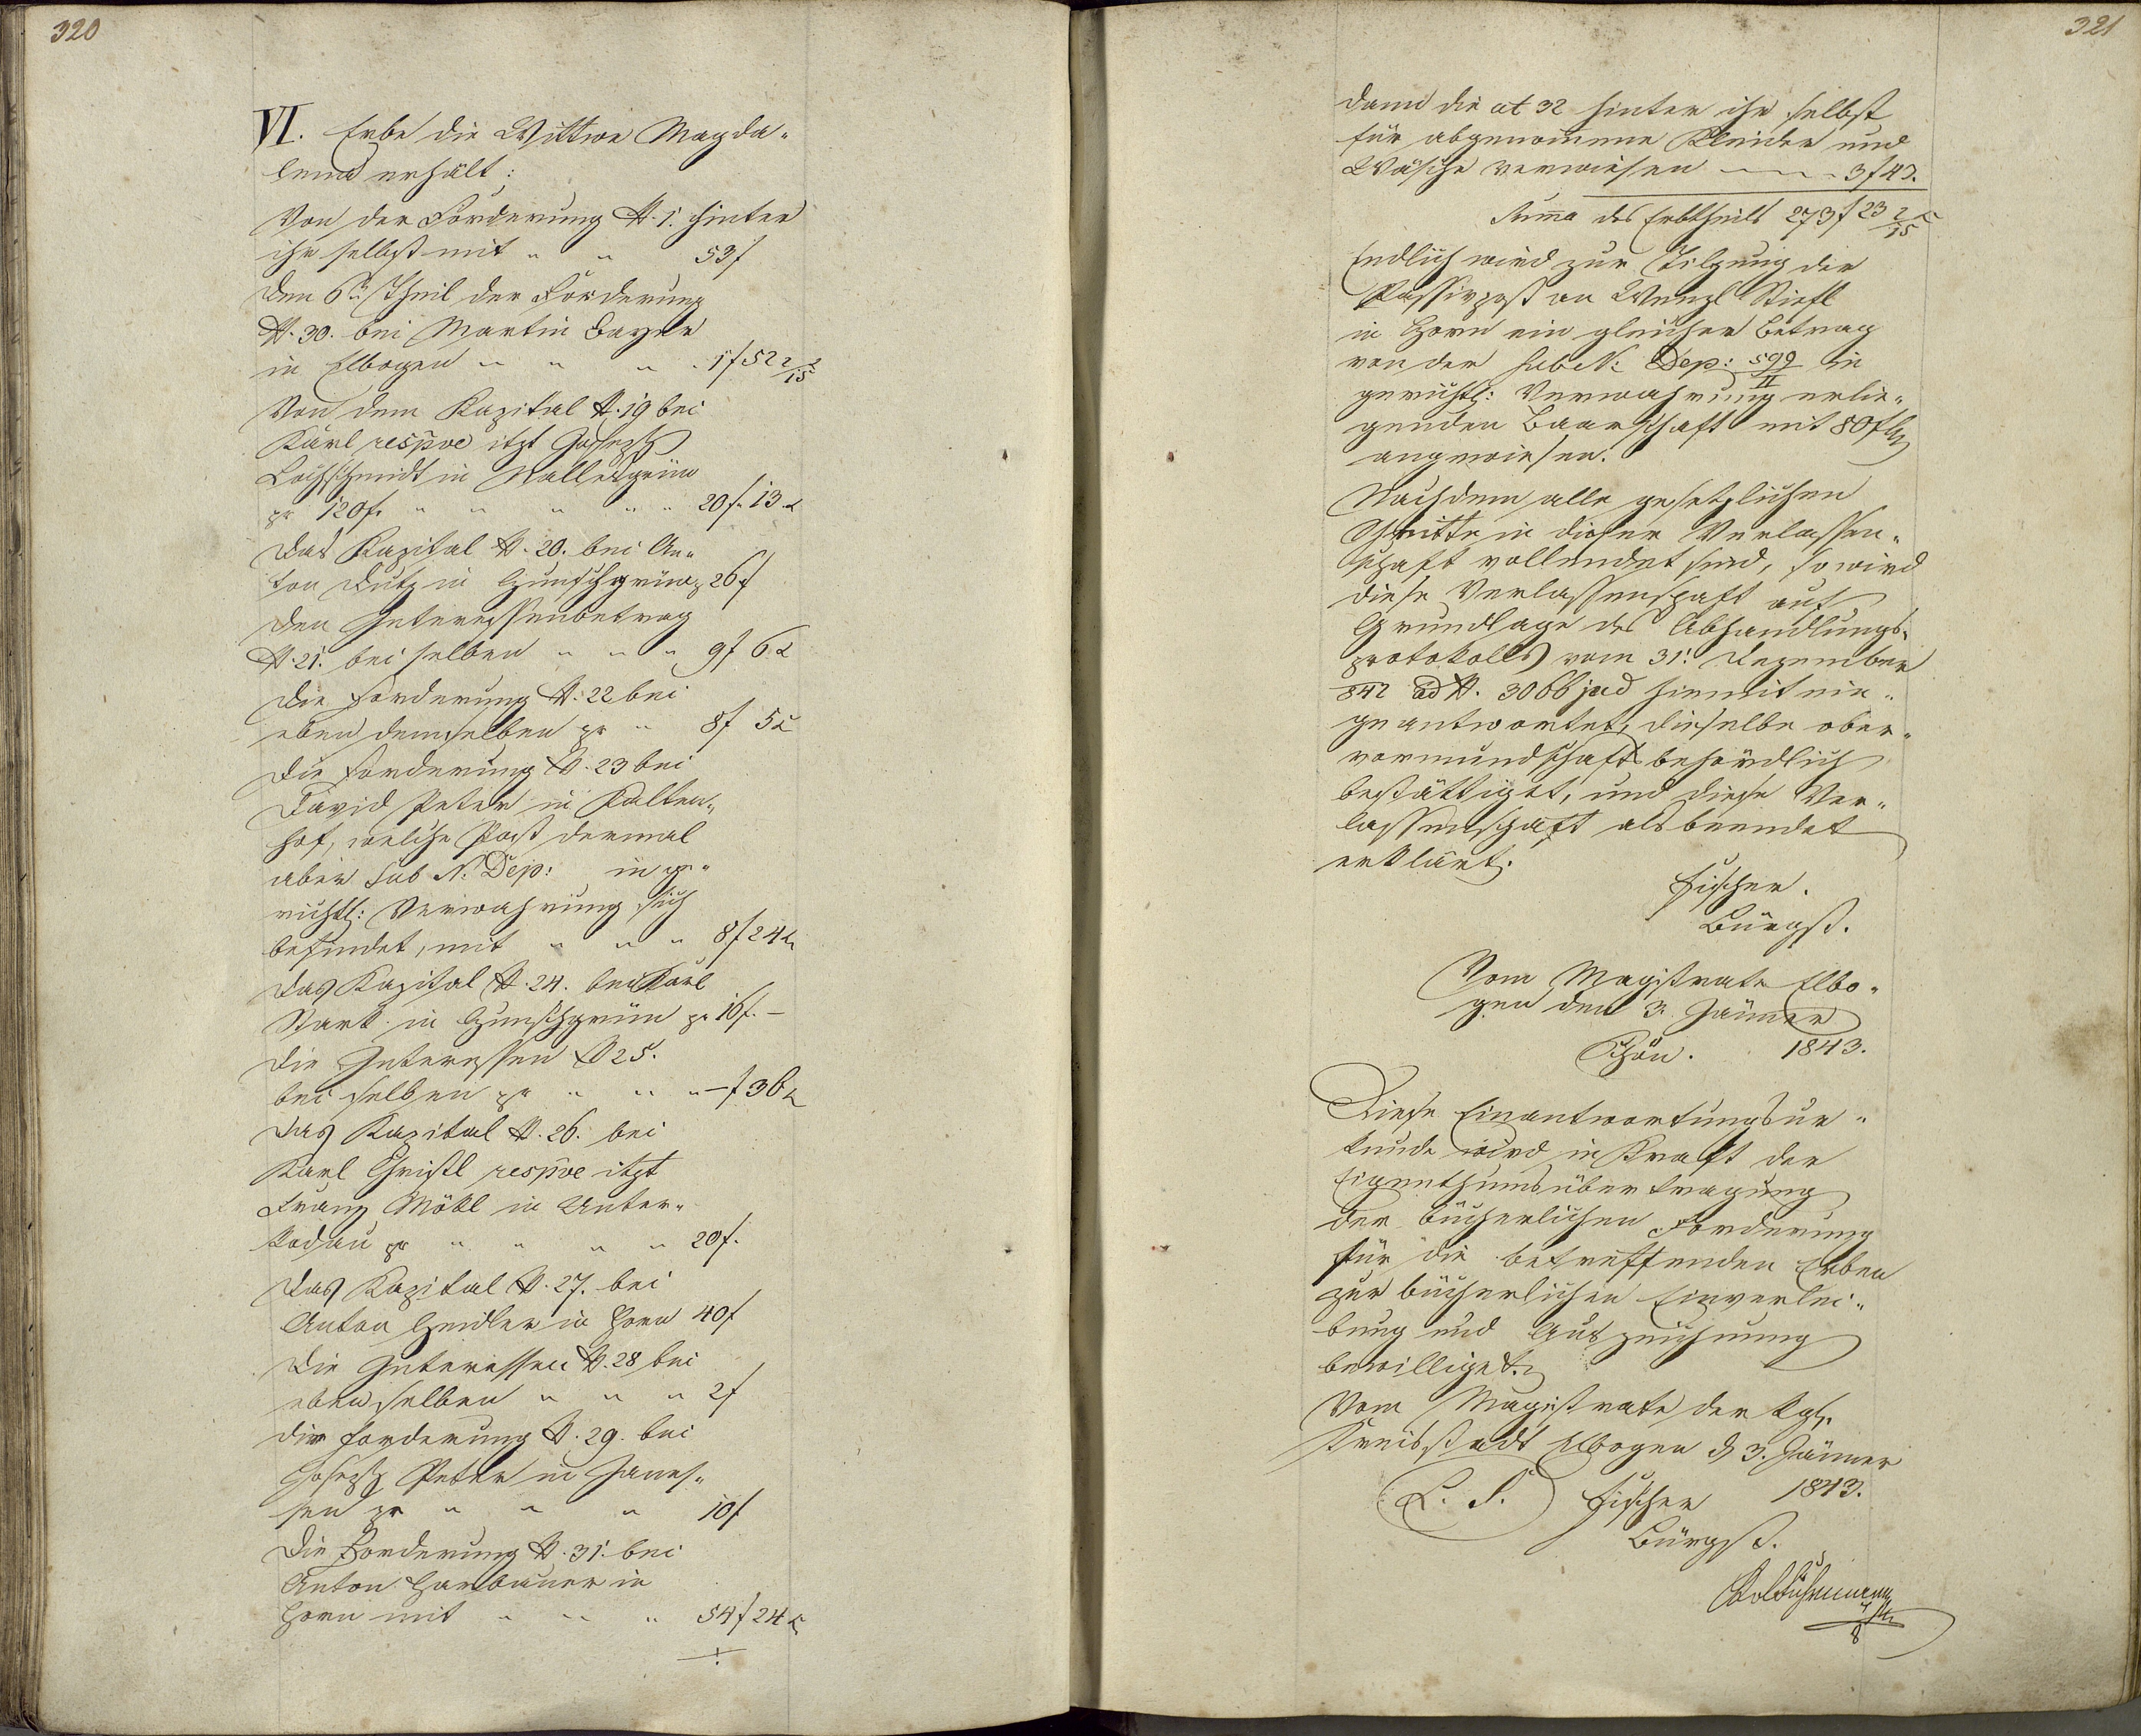 320
VI. Erbe die Wittwe Magda„
lena erhält:
Von der Forderung N. 1. hinter
ihr selbst mit „ „ 53 f
Den 6n Theil der Forderung
N. 30. bei Martin Bayer
in Elbogen „ „ „ „ 1 f 52 2/15
Von dem Kapital N. 19 bei
Karl respve itzt Joseph
Lochschmidt in Nallesgrün
pr 120 f. „ „ „ „ „ 20 f. 13 x
Das Kapital N. 20. bei An„
ton Lutz in Grünschgrün pr 26 f
Den Interessenbetrag
N. 21. bei selben „ „ „ 9 f 6 x
Die Forderung N. 22 bei
eben demselben pr „ 8 f 5 x
Die Forderung N. 23 bei
David Peter in Kalten„
hof, welche Post dermal
aber sub N. Dep: in ge„
richtl: Verwahrung sich
befindet, mit „ „ „ 8 f 24 x
Das Kapital N. 24. bei Karl
Stark in Grünschgrün pr 16 f. –
Die Interessen N 25.
bei selben pr „ „ „ – f 36 x
Das Kapital N. 26. bei
Karl Christl respve itzt
Franz Möckl in Unter„
kodau pr „ „ „ „ 20 f.
Das Kapital N. 27. bei
Anton Heidler in Horn 40 f
Die Interessen N. 28 bei
eben selben „ „ „ 2 f
Die Forderung N. 29. bei
Joseph Peter in Janes„
sen pr „ „ „ 10 f
Die Forderung N. 31. bei
Anton Harbauer in
Horn mit „ „ „ 54 f 24 x
321
dann die at 32 hinter ihr selbst
für abgenommene Kleider und
Wäsche verwiesen 3 f 42.
Summa des Erbtheils 273 f 23 2/15 x
Endlich wird zur Tilgung der
Passivpost an Wenzl Stiefl
in Horn ein gleicher Betrag
von der sub N: Dep: 599/II in
gerichtl: Verwahrung erlie„
genden Baarschaft mit 80 f
angewiesen.
Nachdem alle gesetzlichen
Schritte in dieser Verlassen„
schaft vollendet sind, so wird
diese Verlassenschaft auf
Grundlage des Abhandlungs„
protokolls vom 31. Dezember
842 ad N. 3066 jud hiemit ein„
geantwortet, dieselbe ober„
vormundschaftsbehördlich
bestättiget, und diese Ver„
lassenschaft als beendet
erklärt.
Fischer.
Bürgst.
Vom Magistrate Elbo„
gen den 3. Jänner
Schön. 1843.
Diese Einantwortungsur„
kunde wird in Kraft der
Eigenthumsübertragung
der bücherlichen Forderung
für die betreffenden Erben
zur bücherlichen Einverlei„
bung und Auszeichnung
bewilliget.
Vom Magistrate der kgl.
Kreisstadt Elbogen d 3. Jänner
L. S. Fischer 1843.
Bürgst.